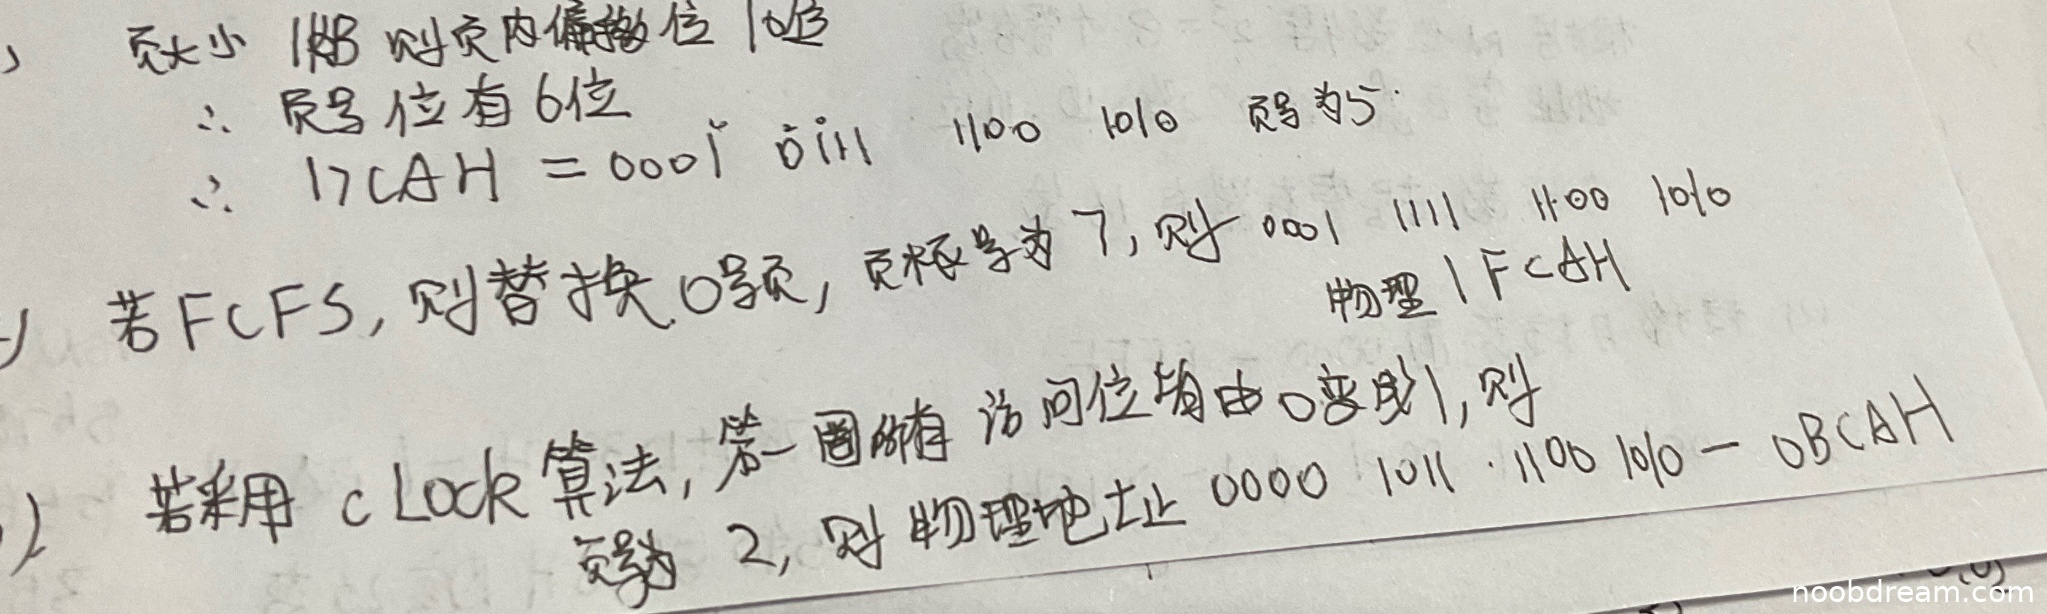 页大小 1KB 则页内偏移位 10位
∴ 页号位有6位
∴ 17CAH = 0001 0111 1100 1010 页号为5.
若FCFS, 则替换0号页, 页框号为7, 则 0001 1111 1100 1010
物理 1FCAH
若采用 cLock算法, 第一圈所有访问位均由0变成1, 则
页号为 2, 则物理地址 0000 1011 1100 1010 - 0BCAH
noobdream.com